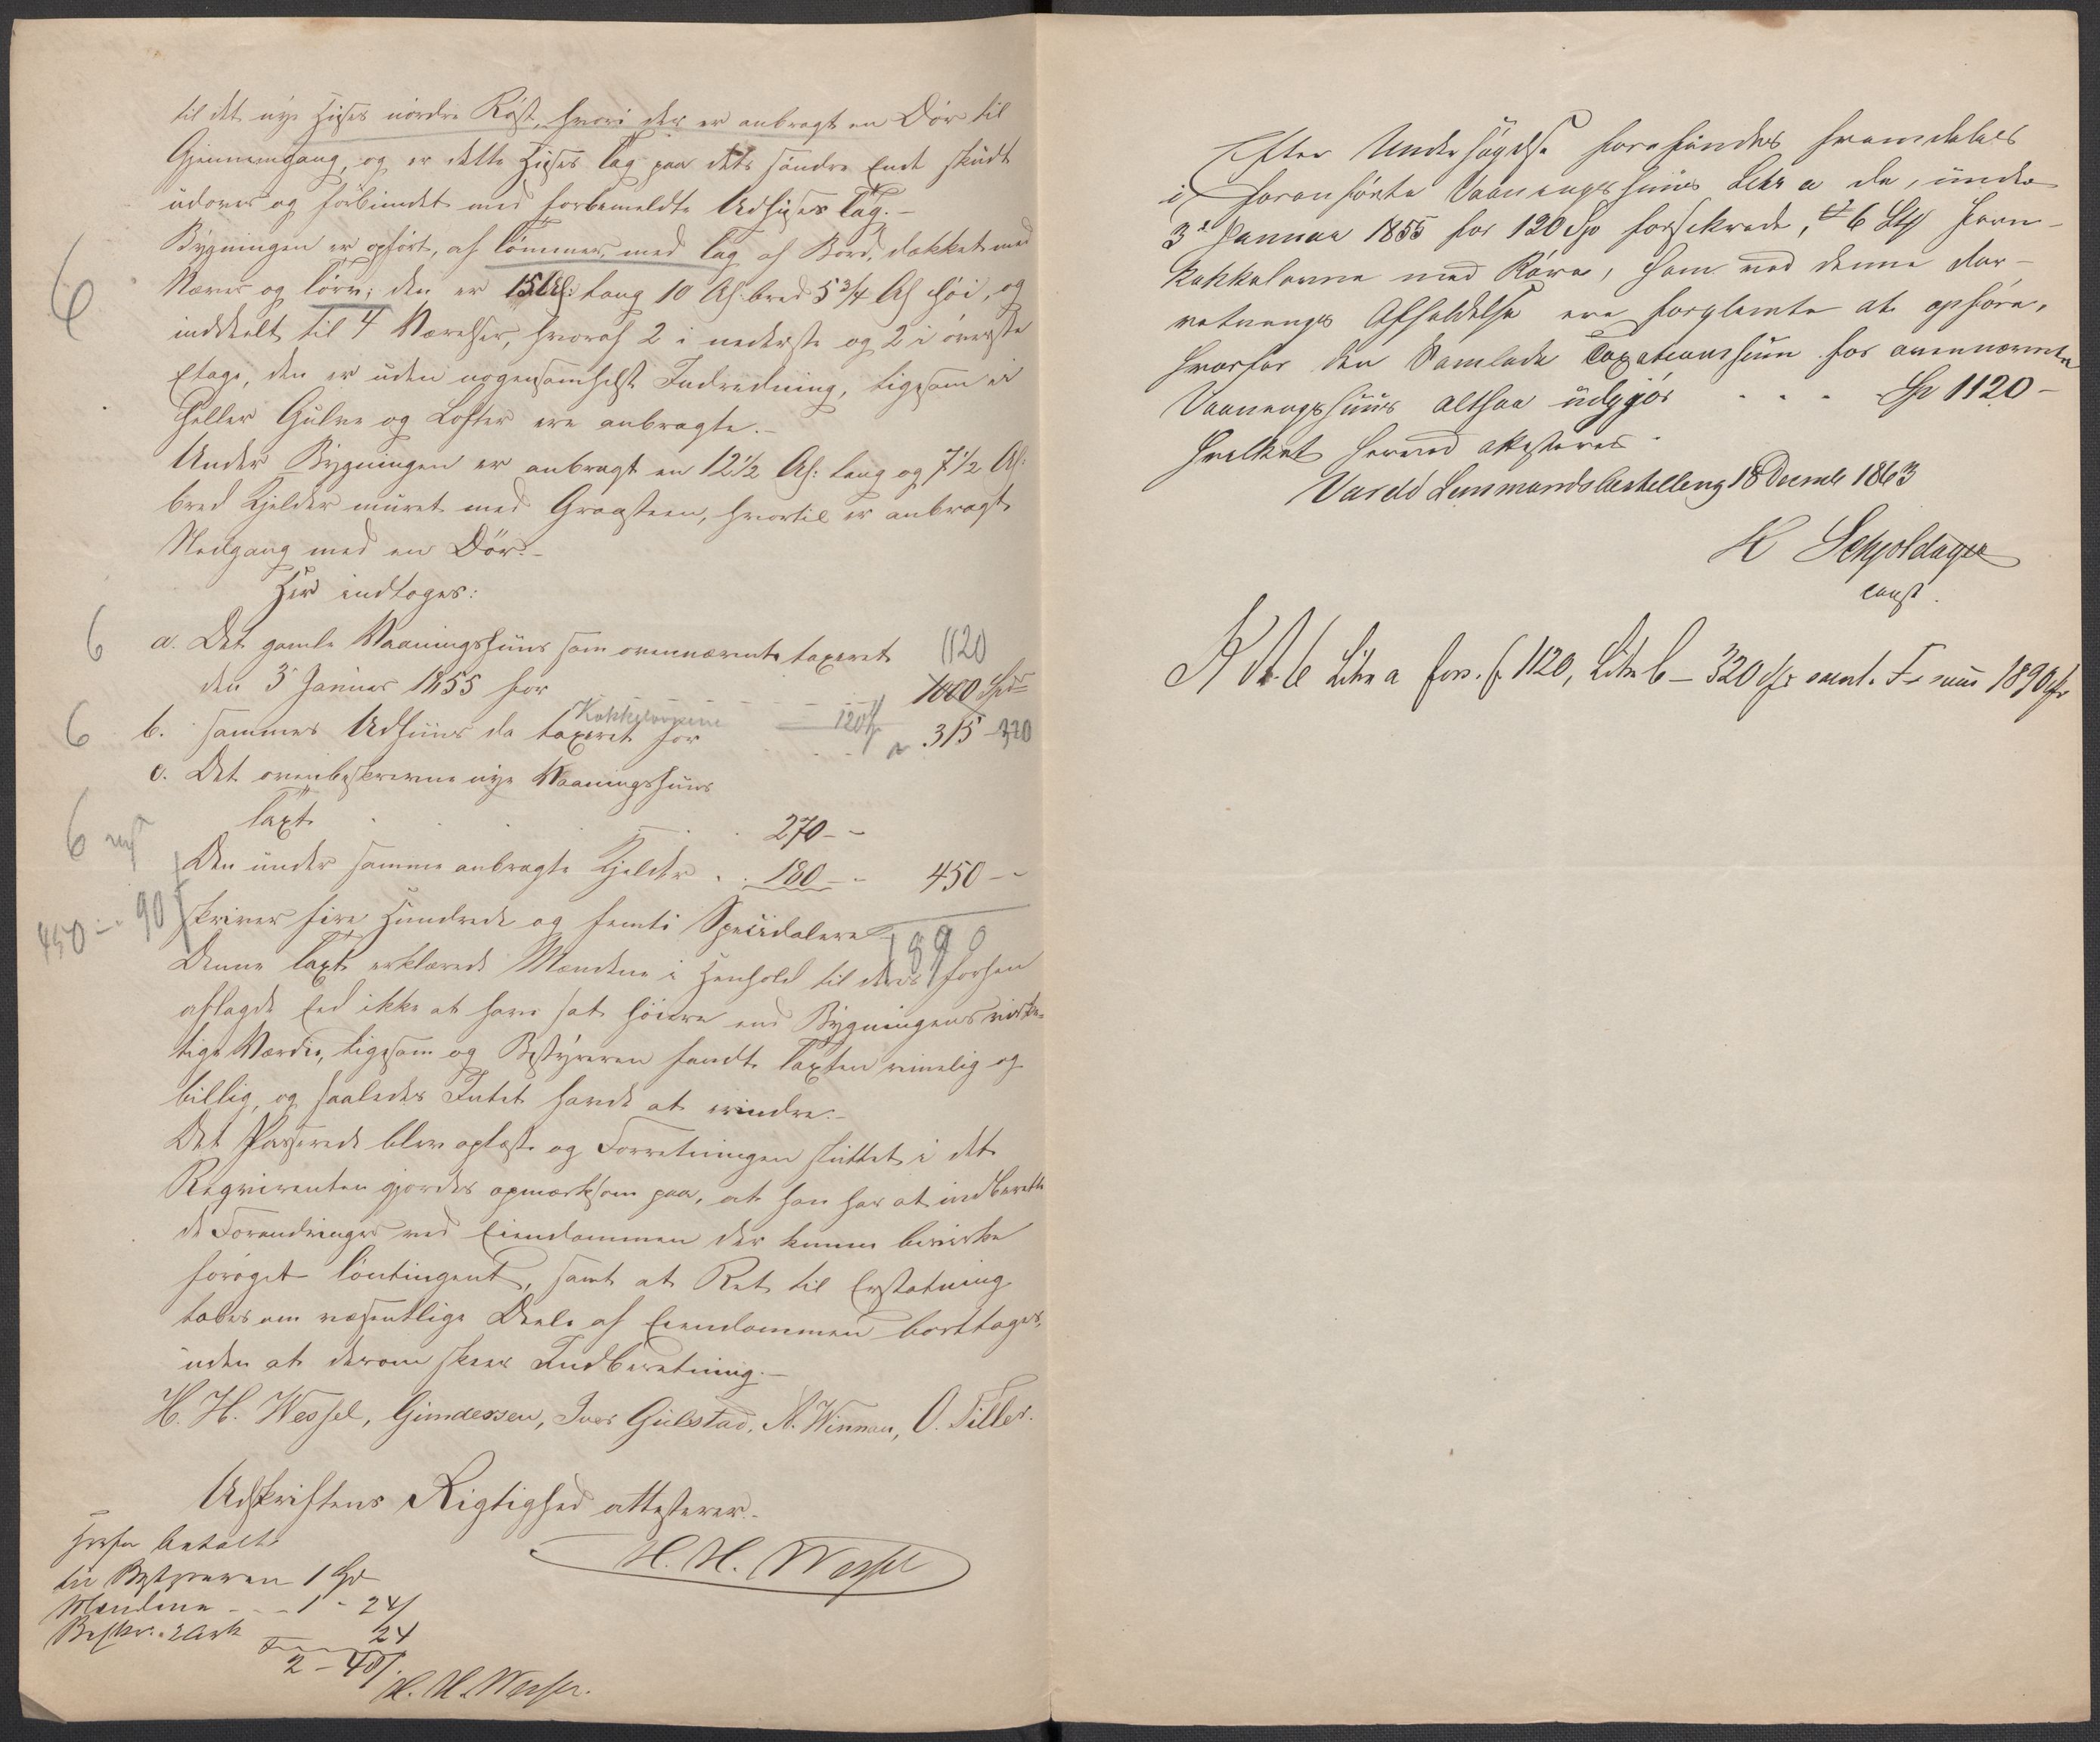 til det nye Huses nordre Röst, hvori der er anbragt en Dör til
Gjennemgang, og er dette Huses Tag paa dets söndre Ende skudt
udover og forbundet med forbemeldte Udhuses Tag.-
Bygningen er opfört, af Tömmer, med Tag af Bord, dækket med
Næver og Törv; den er 15 Al: lang 10 Al: bred 5 3/4 Al höi, og
6
inddeelt til 4 Værelser, hvoraf 2 i nederste og 2 i överste
Etage, den er uden nogensomhelst Indredning, ligesom ei
heller Gulve og Lofter ere anbragte.-
Under Bygningen er anbragt en 12 1/2 Al: lang og 7 1/2 Al:
bred Kjelder muret med Graasteen, hvortil er anbragt
Nedgang med en Dör.-
Her indtoges:
6 a. Det gamle Vaaningshuus som ovennævnt taxeret 1120
den 3 Januar 1855 for 1000 Spd
Kakkelovnene 120
6 b. sammes Udhuus da taxeret for 315 - 320
c. Det ovenbeskrevne nye Vaaningshuus
Taxt 270 - -
6 nyt
Den under samme anbragte Kjelder . . 180 - - 450 - -
450 - 90
skriver fire Hundrede og femti Speciedalere
1890
Denne Taxt erklærede Mændene i Henhold til deres forhen
aflagde Eed ikke at have sat höiere end Bygningens virke-
lige Værdie, ligesom og Bestyreren fandt Taxten rimelig og
billig, og saaledes Intet havde at erindre.-
Det Passerede blev oplæst og Forretningen sluttet i det
Reqvirenten gjordes opmærksom paa, at han har at indberette
de Forandringer ved Eiendommen der kunne bevirke
foröget Contingent, samt at Ret til Erstatning
tabes om væsentlige Dele af Eiendommen borttages,
uden at derom skeer Indberetning.-
H. H. Wessel, Gundersen, Iver Gulstad, A. Winnau, O. Tiller.
Udskriftens Rigtighed attesterer.-
H. H. Wessel
Herfor betalt
til Bestyreren 1 Spd
Mændene - - - 1 - 24
Beskr. 2 Ark 24
2 - 48
H. H. Wessel.
Efter Undersögelse forefindes fremdeles
i foranförte Vaaningshuus Litr a de, under
3 Januar 1855 for 120 Spd forsikrede, 6 Stk Jern-
kakkelovne med Röre, som ved denne For-
retnings Afholdelse ere forglemte at opföre,
hvorfor den samlede Taxationssum for ovennævnte
Vaaningshuus altsaa udgjör - - - - Spd 1120 -
hvilket herved attesteres.
Vardö Lensmandsbestilling 18 Decemb 1863
H Schjoldager
const.
No 6 Litr a fors. f. 1120, Litr b - 320 Spd samt. F. nu 1890 Spd